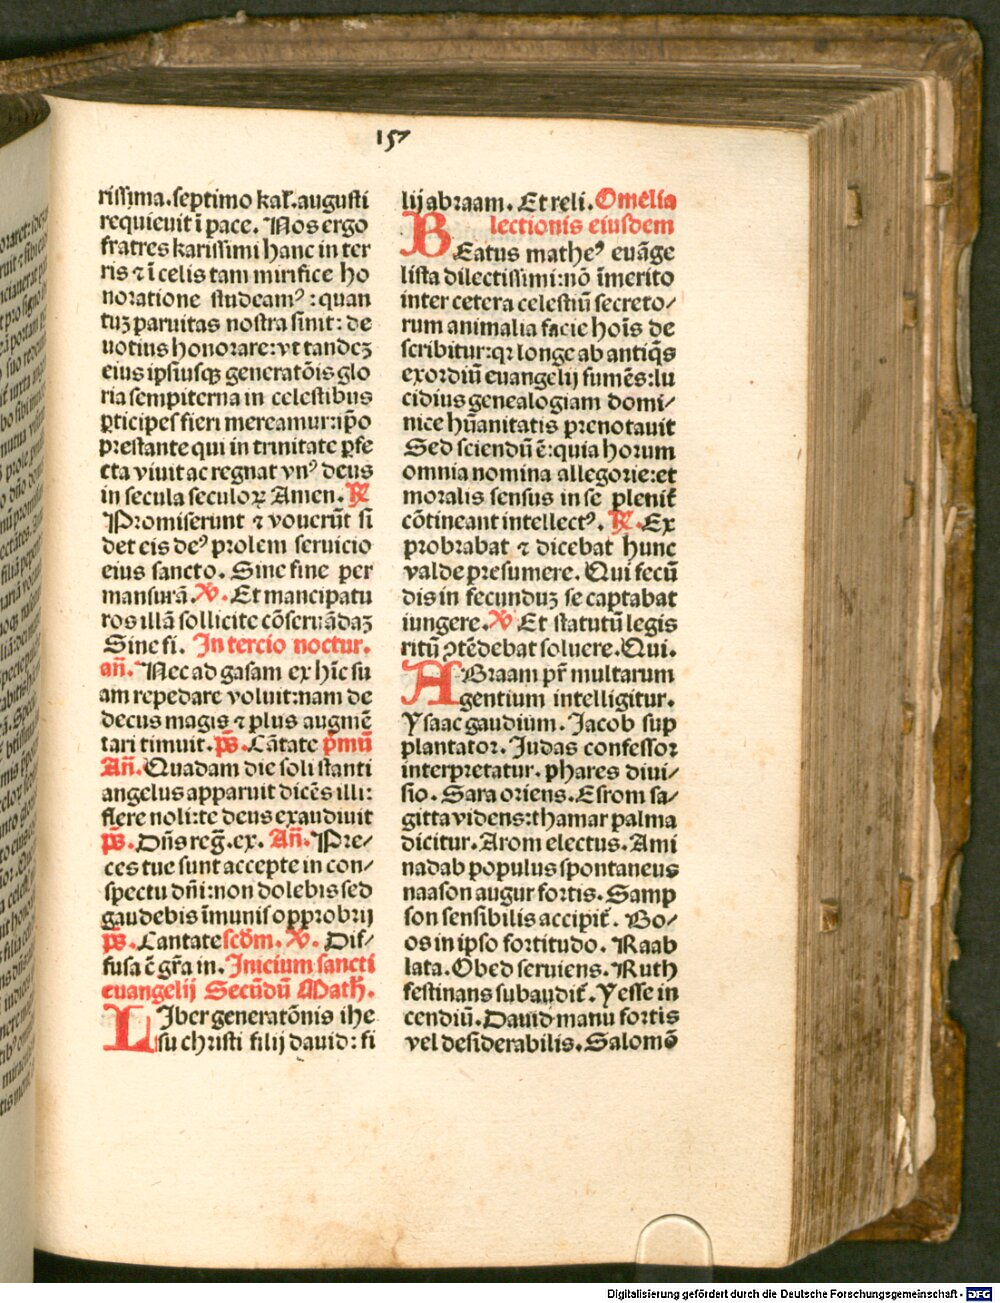 157
rissima. septimo kal̃. augusti
requieuit ĩ pace. Nos ergo
fratres karissimi hanc in ter
ris ⁊ ĩ celis tam mirifice ho
noratione studeamꝰ : quan
tuꝫ paruitas nostra sinit: de
uotius honorare: vt tandeꝫ
eius ipsiusqꝫ generatõis glo
ria sempiterna in celestibus
ꝑticipes fieri mereamur: ip̃o
prestante qui in trinitate ꝑfe
cta viuit ac regnat vnꝰ deus
in secula seculoꝝ Amen. ℟
Promiserunt ⁊ vouerũt si
det eis deꝰ prolem seruicio
eius sancto. Sine fine per
mansurã. ℣. Et mancipatu
ros illã sollicite cõseruãdaꝫ
Sine fi. In tercio noctur.
añ. Nec ad gasam ex hĩc su
am repedare voluit: nam de
decus magis ⁊ plus augmẽ
tari timuit. p̃s. Cãtate p̃mũ
Añ. Quadam die soli stanti
angelus apparuit dicẽs illi:
flere noli: te deus exaudiuit
p̃s. Dñs reg̃. ex. Añ. Pre⸗
ces tue sunt accepte in con⸗
spectu dñi: non dolebis sed
gaudebis ĩmunis opprobrij
p̃s. Cantate scd̃m. ℣. Dif⸗
fusa ẽ gr̃a in. Inicium sancti
euangelij Secũdũ Math̃.
LIber generatõnis ihe
su christi filij dauid: fi
lij abraam. Et reli. Omẽlia
lectionis eiusdem
BEatus matheꝰ euãge
lista dilectissimi: nõ ĩmerito
inter cetera celestiũ secreto⸗
rum animalia facie hoĩs de
scribitur: qꝛ longe ab antiq̃s
exordiũ euangelij sumẽs: lu
cidius genealogiam domi⸗
nice hũanitatis prenotauit
Sed sciendũ ẽ: quia horum
omnia nomina allegorie: et
moralis sensus in se plenit̃
cõtineant intellectꝰ. ℟. Ex
probrabat ⁊ dicebat hunc
valde presumere. Qui fecũ
dis in fecunduꝫ se captabat
iungere. ℣ Et statutũ legis
ritũ ꝯtẽdebat soluere. Qui.
ABraam pr̃ multarum
gentium intelligitur.
Ysaac gaudium. Jacob sup
plantator. Judas confessor
interpretatur. phares diui⸗
sio. Sara oriens. Esrom sa⸗
gitta videns: thamar palma
dicitur. Arom electus. Ami
nadab populus spontaneus
naason augur fortis. Samp
son sensibilis accipit̃. Bo⸗
os in ipso fortitudo. Raab
lata. Obed seruiens. Ruth
festinans subaudit̃. Yesse in
cendiũ. Dauid manu fortis
vel desiderabilis. Salomõ
Digitalisierung gefördert durch die Deutsche Forschungsgemeinschaft - DFG